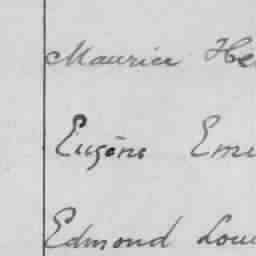 Maurice He
Eugène Emi
Edmond Loui